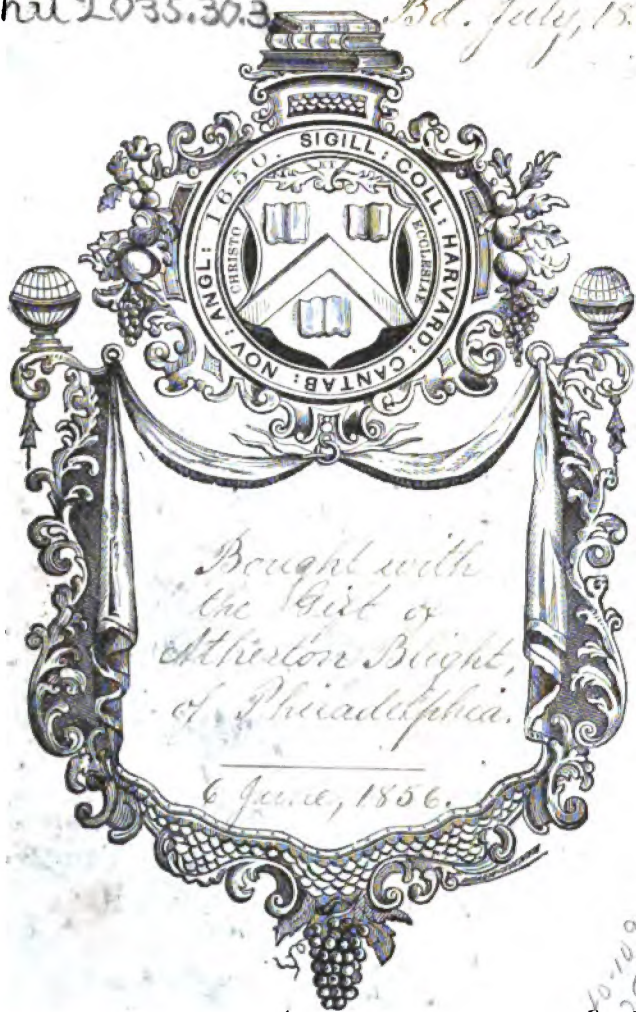 2035.30.3
Bd. July, 18
SIGILL: COLL: HARVARD: CANTAB: NOV: ANGL: 1650.
ET
CHRISTO
ECCLESIAE
Bought with
the Gift of
Atherton Blight,
of Philadelphia.
6 June, 1856.